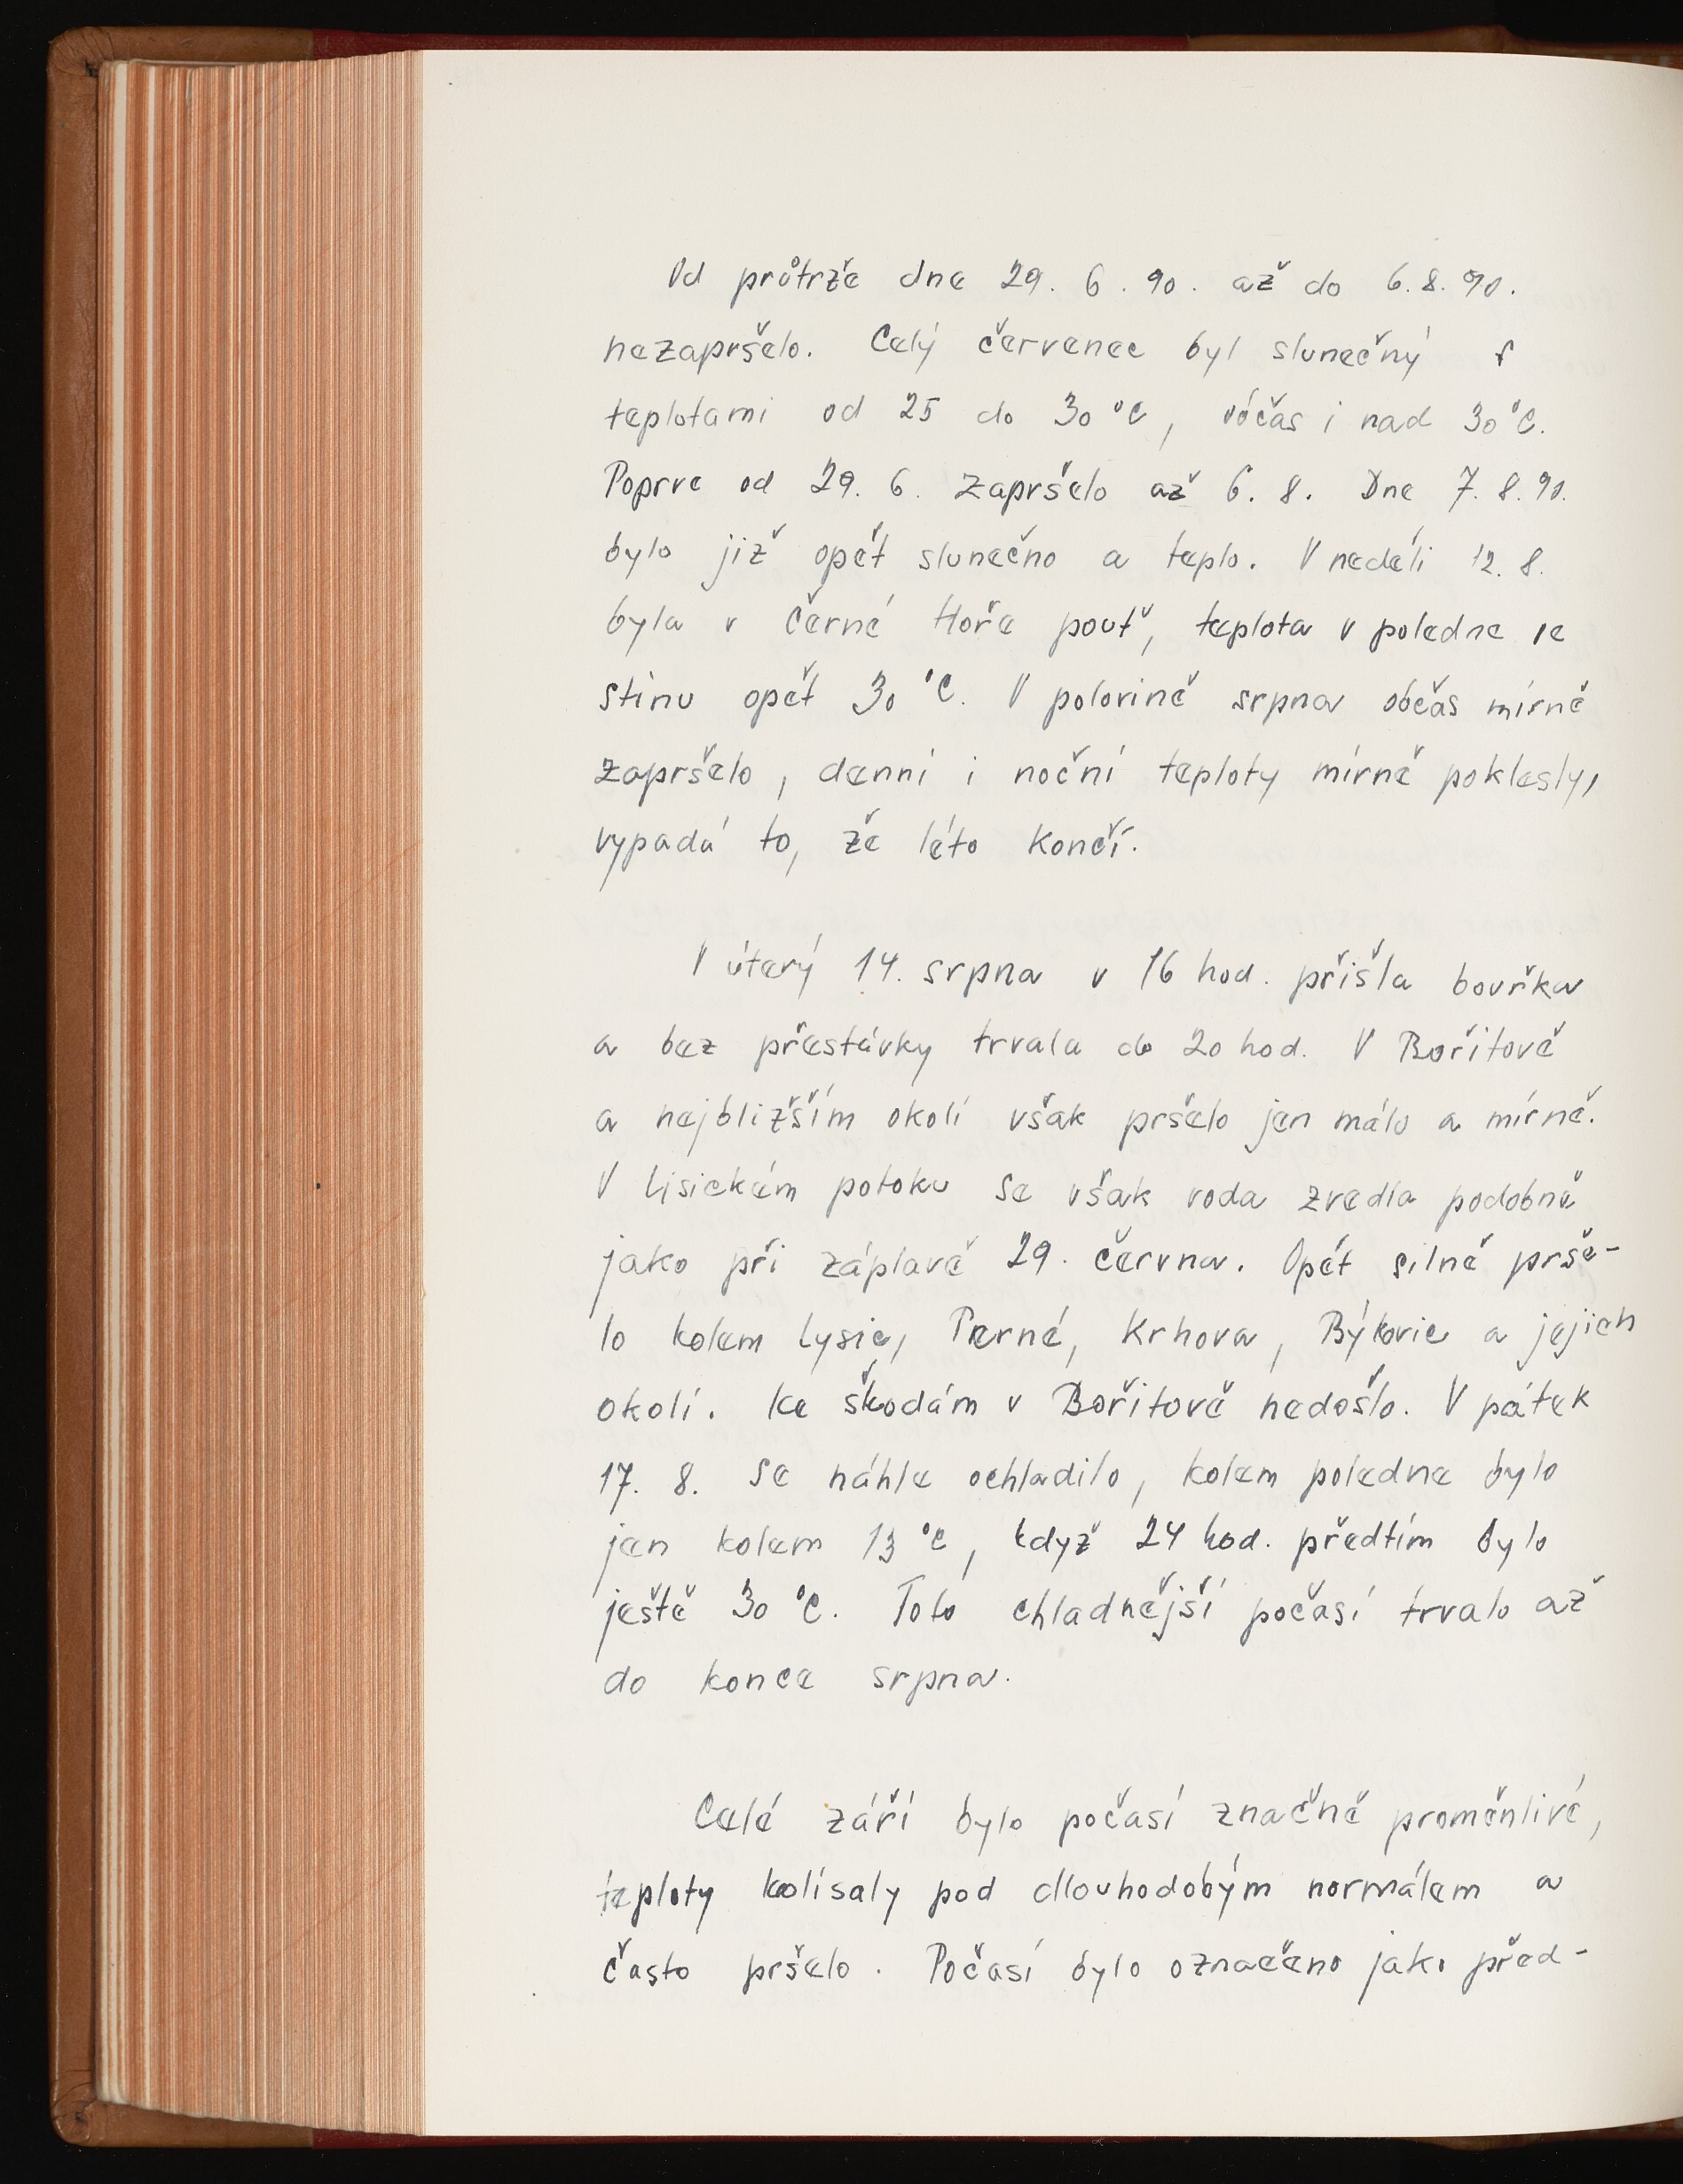 Od průtrže dne 29. 6. 90. až do 6. 8. 90.
nezapršelo. Celý červenec byl slunečný s
teplotami od 25 do 30 °C, občas i nad 30 °C.
Poprve od 29. 6. zapršelo až 6. 8. Dne 7. 8. 90.
bylo již opět slunečno a teplo. V neděli 12. 8.
byla v Černé Hoře pouť, teplota v poledne ve
stínu opět 30 °C. V polovině srpna občas mírně
zapršelo, denní i noční teploty mírně poklesly,
vypadá to, že léto končí.
V úterý 14. srpna v 16 hod. přišla bouřka
a bez přestávky trvala do 20 hod. V Bořitově
a nejbližším okolí však pršelo jen málo a mírně.
V Lisickém potoku se však voda zvedla podobně
jako při záplavě 29. června. Opět silně prše-
lo kolem Lysic, Perné, Krhova, Býkovic a jejich
okolí. Ke škodám v Bořitově nedošlo. V pátek
17. 8. se náhle ochladilo, kolem poledne bylo
jen kolem 13 °C, když 24 hod. předtím bylo
ještě 30 °C. Toto chladnější počasí trvalo až
do konce srpna.
Celé září bylo počasí značně proměnlivé,
teploty kolísaly pod dlouhodobým normálem a
často pršelo. Počasí bylo označeno jako před-